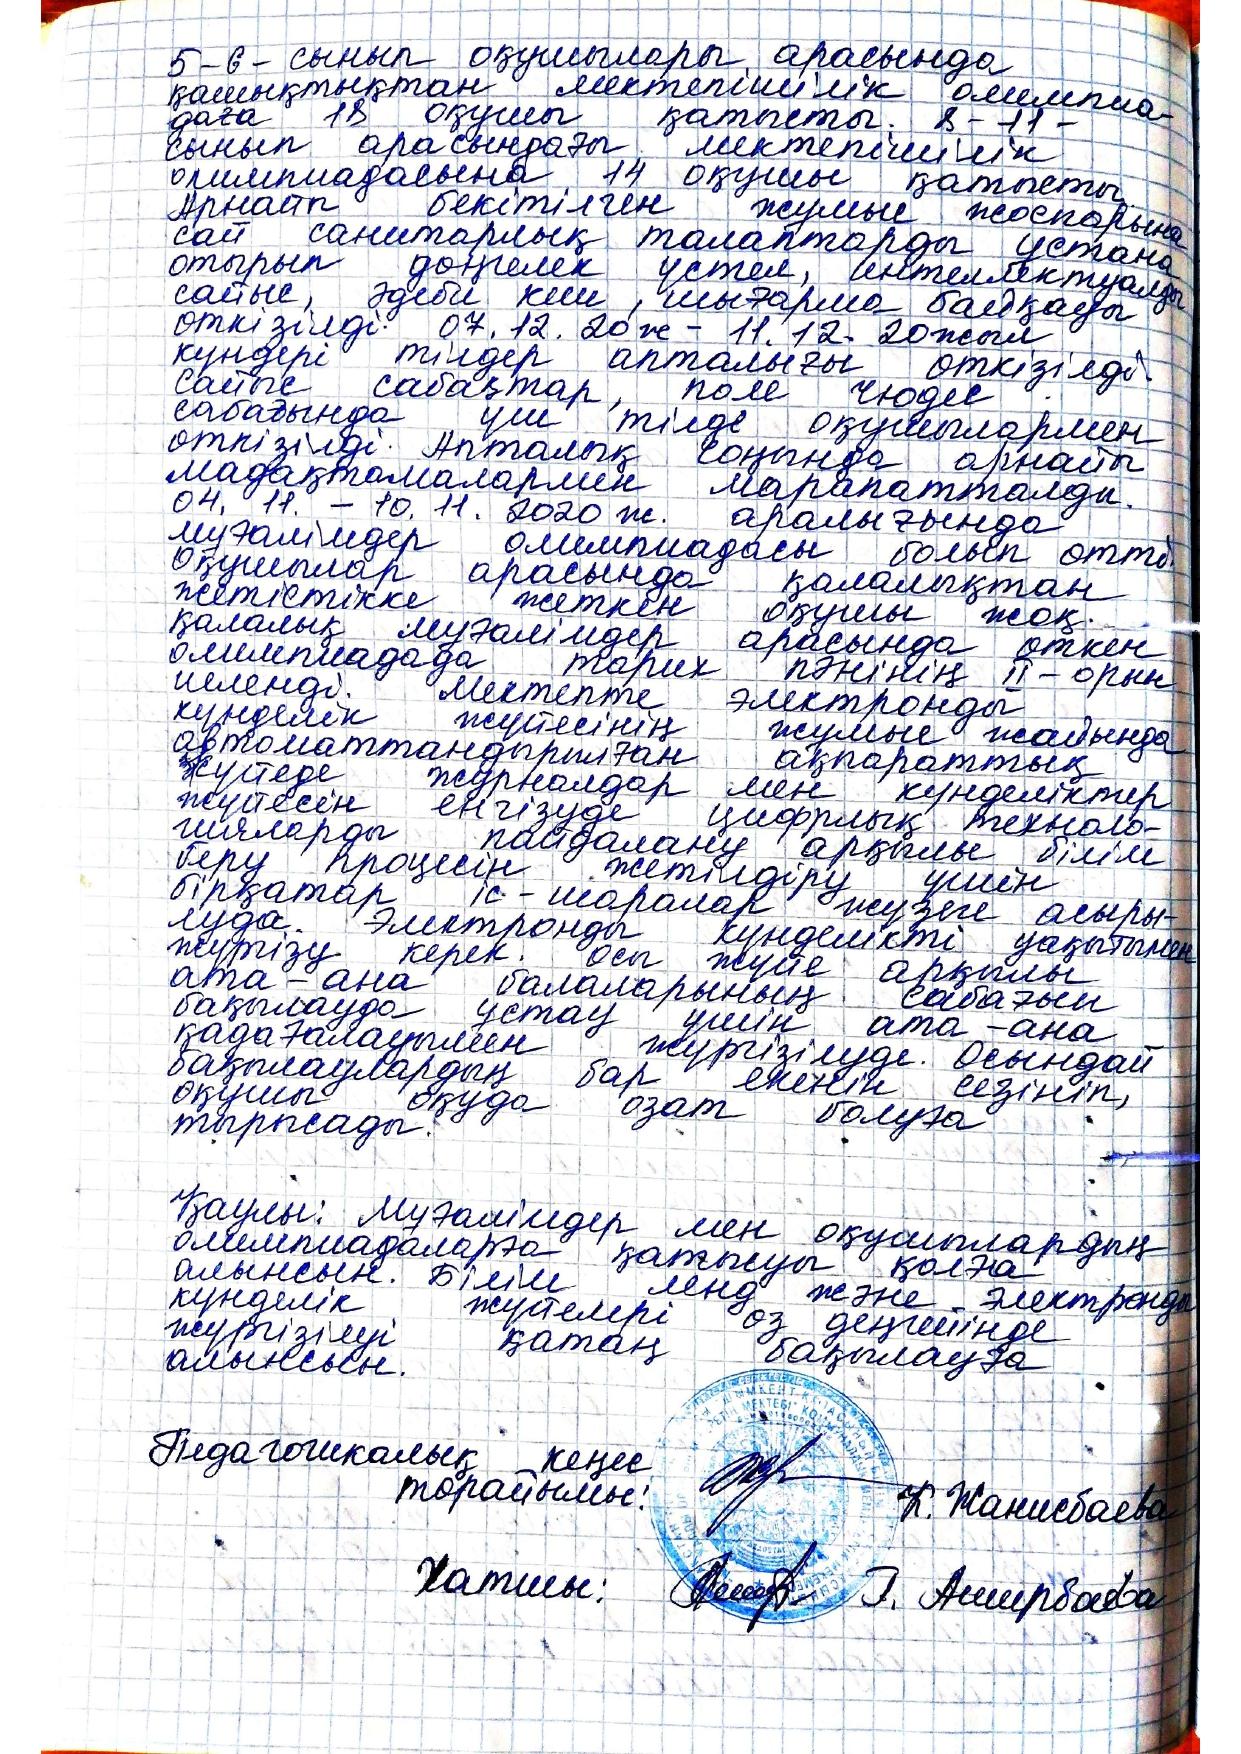 5-6- сынып оқушылары арасында
қашықтықтан мектепішілік олимпиа-
даға 18 оқушы қатысты. 8-11-
сынып арасындағы мектепішілік
олимпиадасына 14 оқушы қатысты.
Арнайы бекітілген жұмыс жоспарына
сай санитарлық талаптарды ұстана
отырып дөңгелек үстел, интеллектуалды
сайыс, әдеби кеш, шығарма байқауы
өткізілді. 07.12.20ж - 11.12.20жыл
күндері тілдер апталығы өткізілді.
Сайыс сабақтар, поле чюдес
сабағында үш тілде оқушылармен
өткізілді. Апталық соңында арнайы
мадақтамалармен марапатталды.
04.11. - 10.11.2020ж. аралығында
мұғалімдер олимпиадасы болып өтті.
Оқушылар арасында қалалықтан
жетістікке жеткен оқушы жоқ.
Қалалық мұғалімдер арасында өткен
олимпиадада тарих пәнінің II-орын
иеленді. Мектепте электронды
күнделік жүйесінің жұмыс жайында
автоматтандырылған ақпараттық
жүйеде журналдар мен күнделіктер
жүйесін енгізуде цифрлық техноло-
гияларды пайдалану арқылы білім
беру процесін жетілдіру үшін
бірқатар іс-шаралар жүзеге асыры-
луда. Электронды күнделікті уақытымен
жүргізу керек. Осы жүйе арқылы
ата-ана балаларының сабағын
бақылауда ұстау үшін ата-ана
қадағалауымен жүргізілуде. Осындай
бақылаулардың бар екенін сезініп,
оқушы оқуда озат болуға
тырысады.
Қаулы: Мұғалімдер мен оқушылардың
олимпиадаларға қатысуы қолға
алынсын. Білім ленд және электронды
күнделік жүйелері өз деңгейінде
жүргізілуі қатаң бақылауға
алынсын.
Педагогикалық кеңес
төрайымы: К. Жанисбаева
Хатшы: Г. Аширбаева